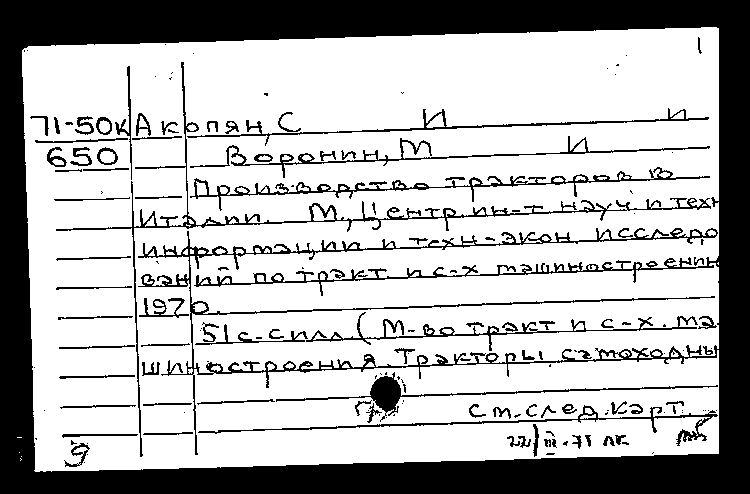 1
71-50к Акопян, С И и
650 Воронин, М И
Производство тракторов в
Италии. М., Центр. ин-т науч. и техн
информации и техн-экон. исследо
ваний по тракт и с-х машиностроению
1970.
51с. с илл (М-во тракт и с-х. ма
шиностроения. Тракторы, самоходны
см. след. карт.
22/III-71 лк
9